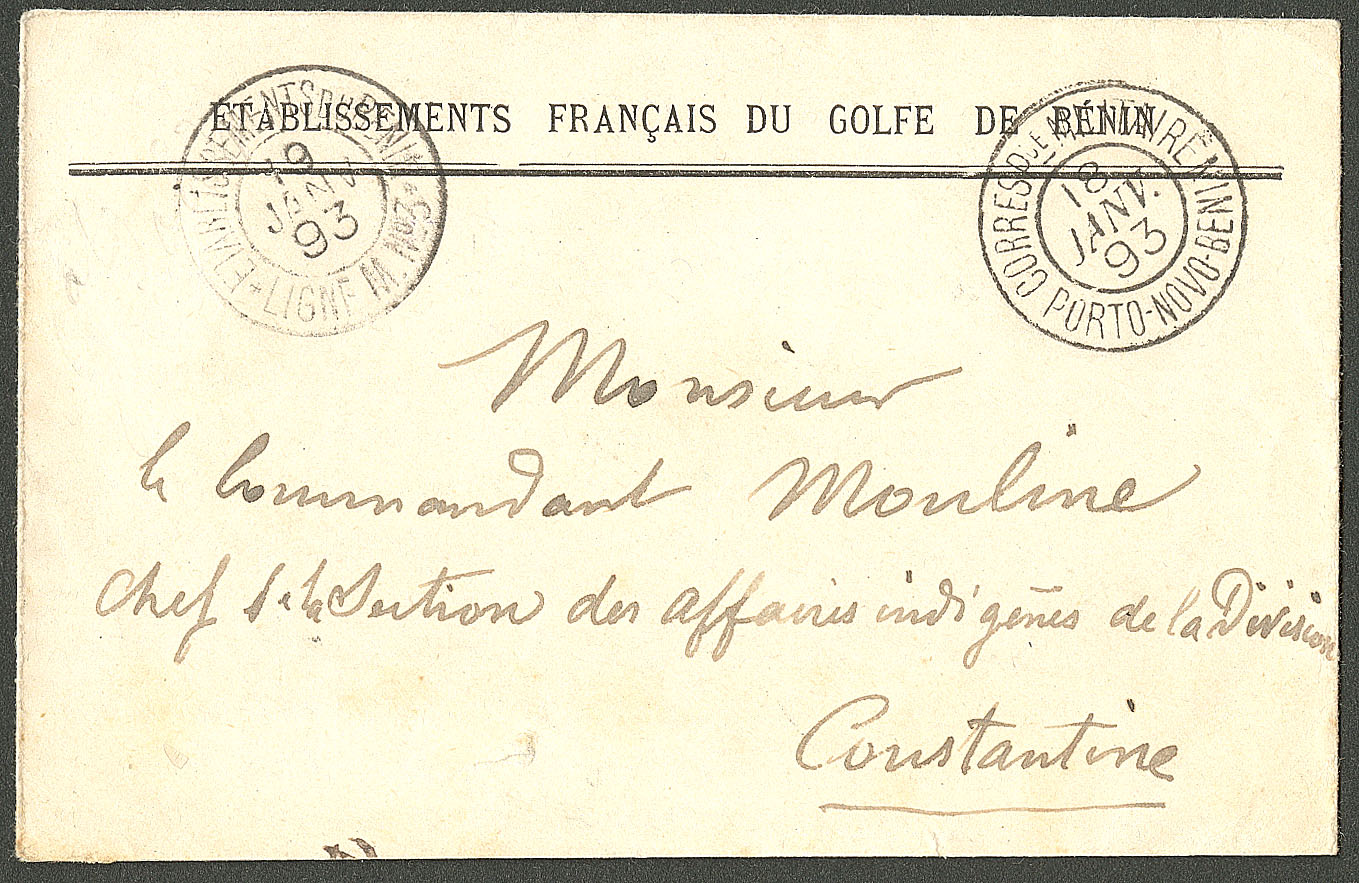 ÉTABLISSEMENTS FRANÇAIS DU GOLFE DE BÉNIN
LIGNE M. No 3
19
JANV.
93
CORRESP.DCE MILITAIRE
PORTO-NOVO-BENIN
18
JANV.
93
Monsieur
le Commandant Mouline
Chef de la Section des affaires indigènes de la Division
Constantine